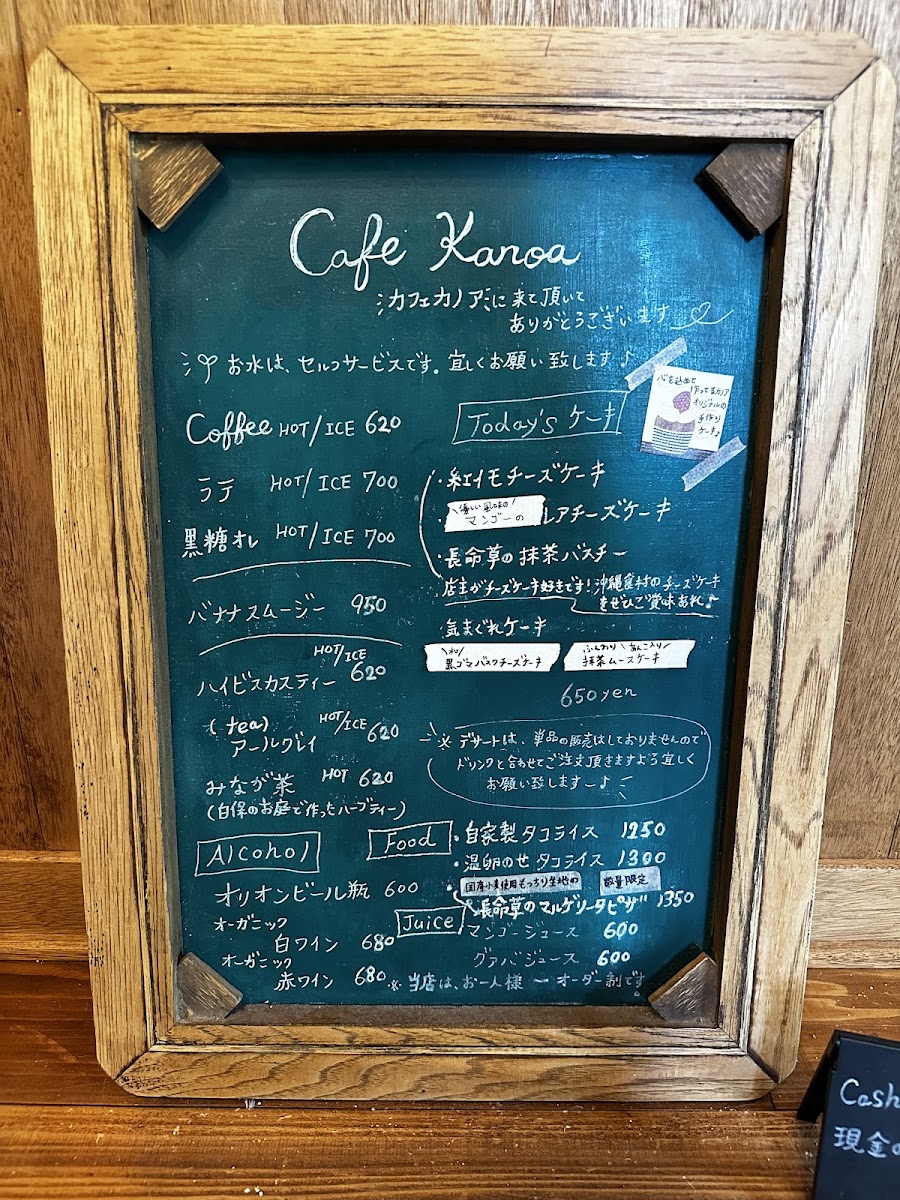 Cafe Kanoa
カフェカノアに来て頂いて
ありがとうございます
お水は、セルフサービスです。宜しくお願い致します♪
Coffee HOT/ICE 620
ラテ HOT/ICE 700
黒糖オレ HOT/ICE 700
バナナスムージー 950
HOT/ICE
ハイビスカスティー 620
(tea) HOT/ICE
アールグレイ 620
みなが茶 HOT 620
(白保のお庭で作ったハーブティー)
Alcohol
オリオンビール瓶 600
オーガニック
白ワイン 680
オーガニック
赤ワイン 680
Today's ケーキ
心を込めて
作ってるカノア
オリジナルの
手作り
ケーキ♪
・紅イモチーズケーキ
\優しい風味の/
マンゴーの レアチーズケーキ
・長命草の抹茶バスチー
店主がチーズケーキ好きです!沖縄食材のチーズケーキ
をぜひご賞味あれ♪
気まぐれケーキ
\和/
黒ゴマバスクチーズケーキ
ふんわり\あんこ入り/
抹茶ムースケーキ
650yen
※デザートは、単品の販売はしておりませんので
ドリンクと合わせてご注文頂きますよう宜しく
お願い致しますー♪
Food
・自家製タコライス 1250
・温卵のせタコライス 1300
・国産小麦使用もっちり生地の 数量限定
長命草のマルゲリータピザ 1350
Juice
マンゴージュース 600
グァバジュース 600
※当店は、お一人様 一オーダー制です
Cash
現金の